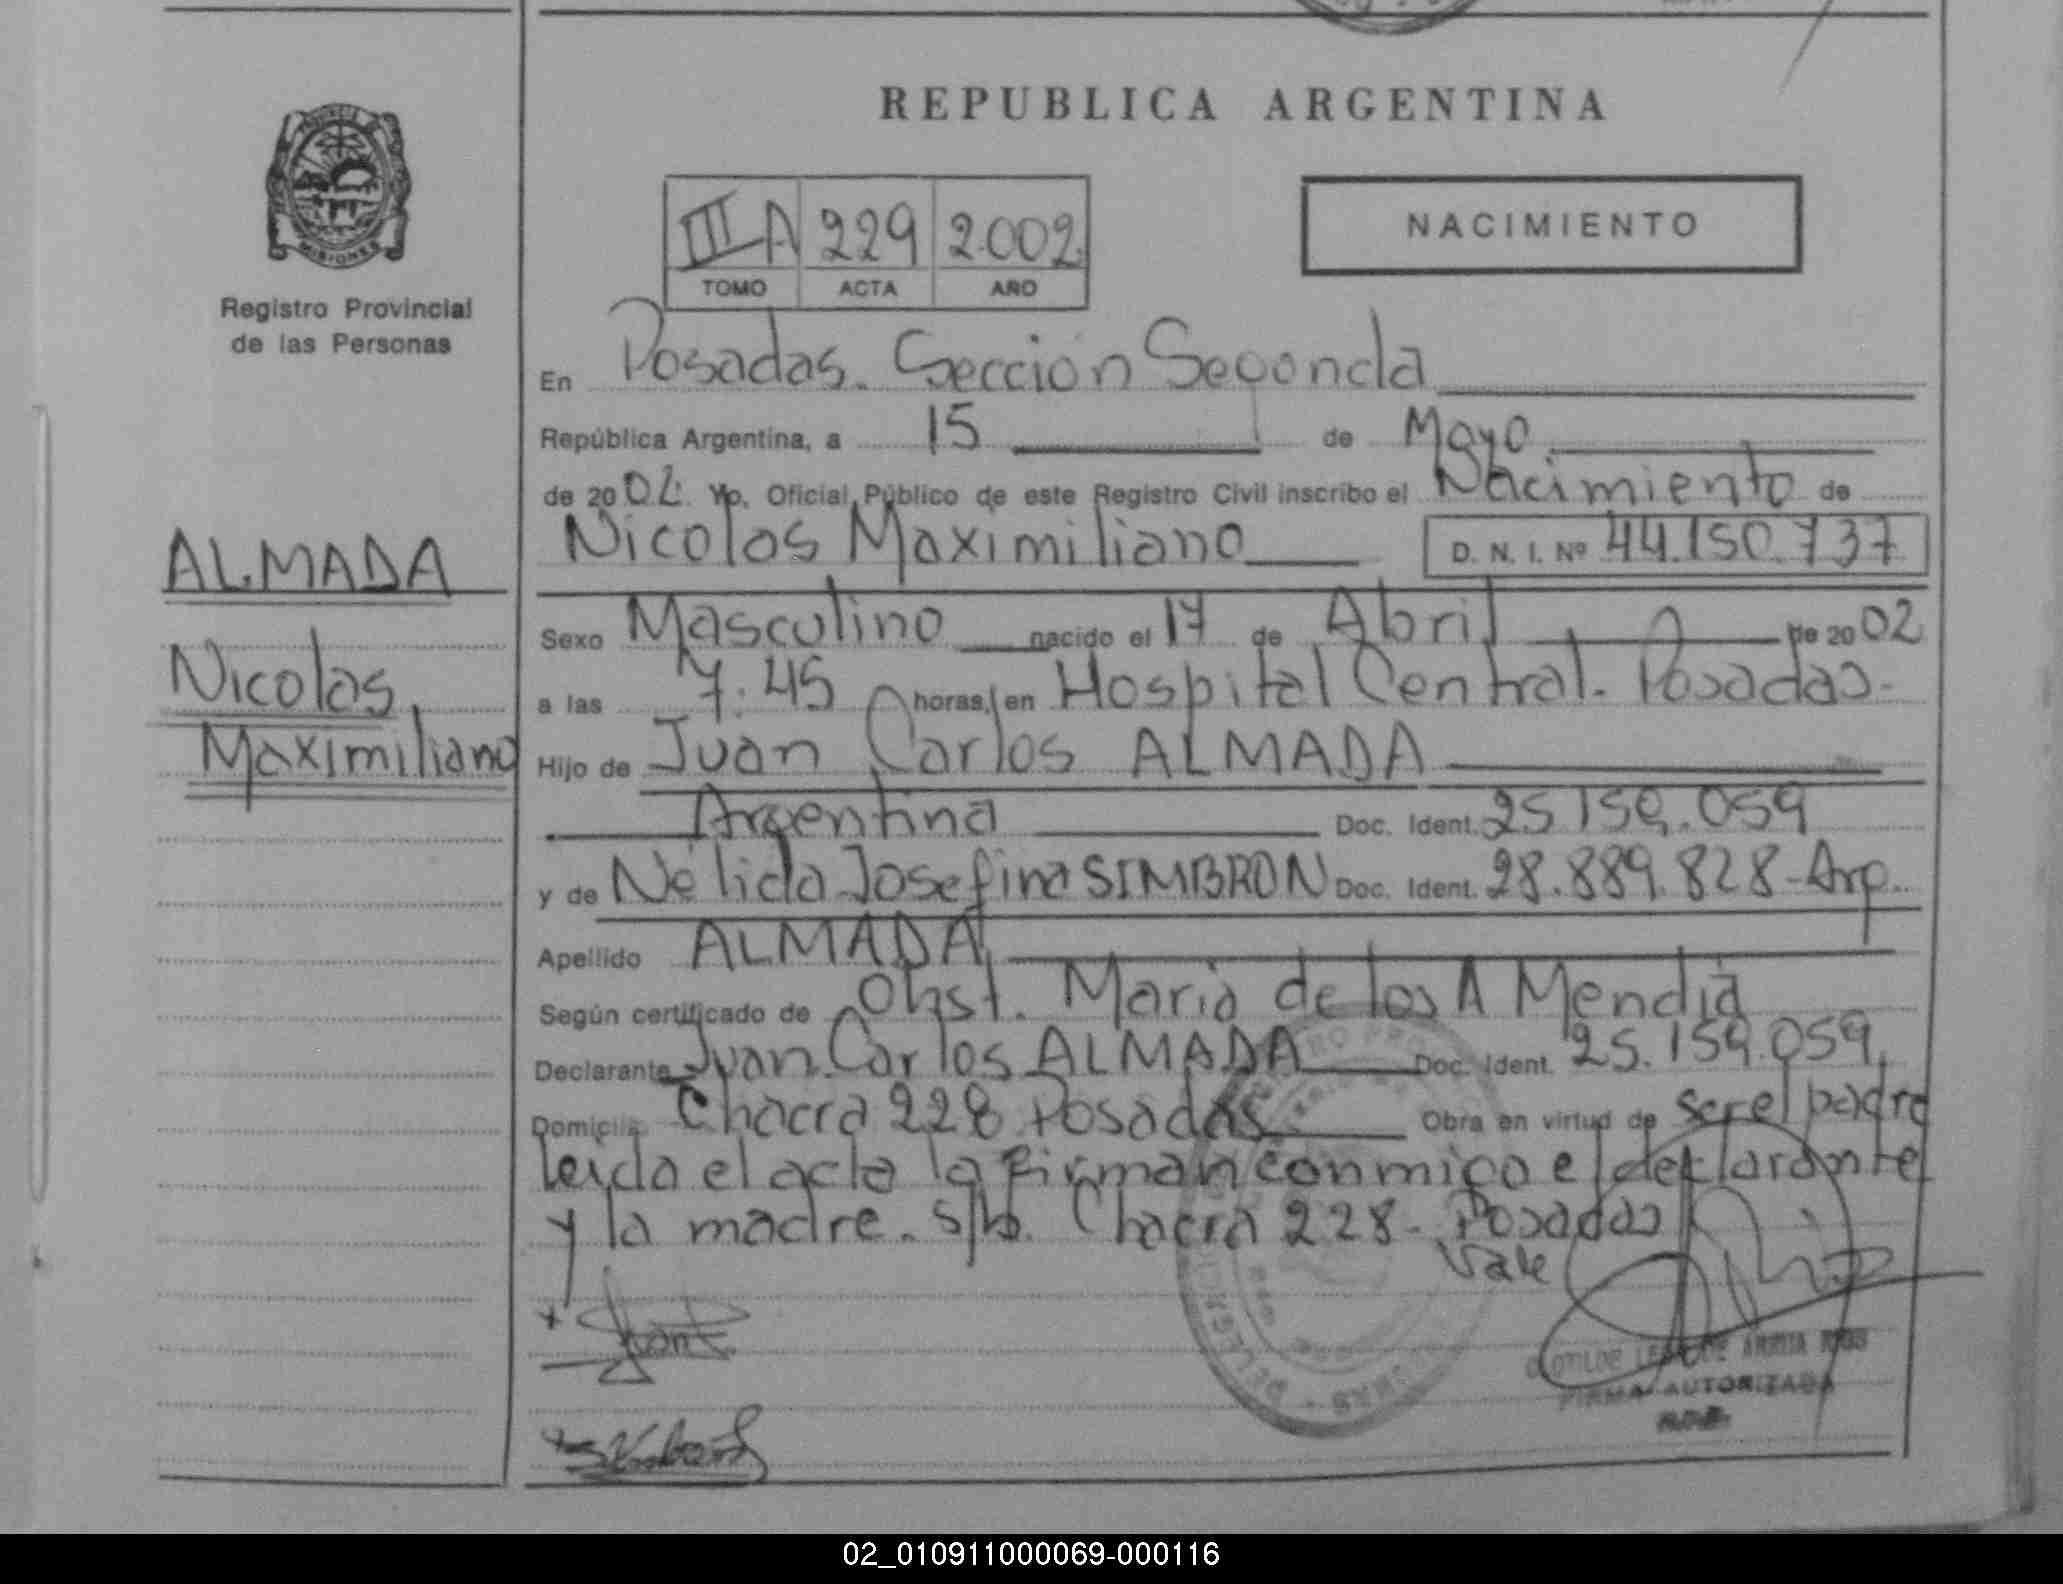 REPUBLICA ARGENTINA
PROVINCIA DE
MISIONES
Registro Provincial
de las Personas
III A 229 2.002
TOMO ACTA AÑO
NACIMIENTO
En Posadas. Sección Segunda
República Argentina, a 15 de Mayo
de 2002. Yo, Oficial Público de este Registro Civil inscribo el Nacimiento de
Nicolas Maximiliano D. N. I. Nº 44.150.737
ALMADA
Nicolas
Maximiliano
Sexo Masculino nacido el 17 de Abril de 2002
a las 7.45 horas, en Hospital Central. Posadas.
Hijo de Juan Carlos ALMADA
Argentina Doc. Ident. 25.159.059
y de Nélida Josefina SIMBRON Doc. Ident. 28.889.828-Arg.
Apellido ALMADA
Según certificado de Obst. Maria de los A Mendia
Declarante Juan Carlos ALMADA Doc. Ident. 25.159.059
Domicilio Chacra 228 Posadas Obra en virtud de ser el padre
leida el acta la firman conmigo el declarante
y la madre. S/b. Chacra 228- Posadas
Vale
FIRMA AUTORIZADA
02_010911000069-000116